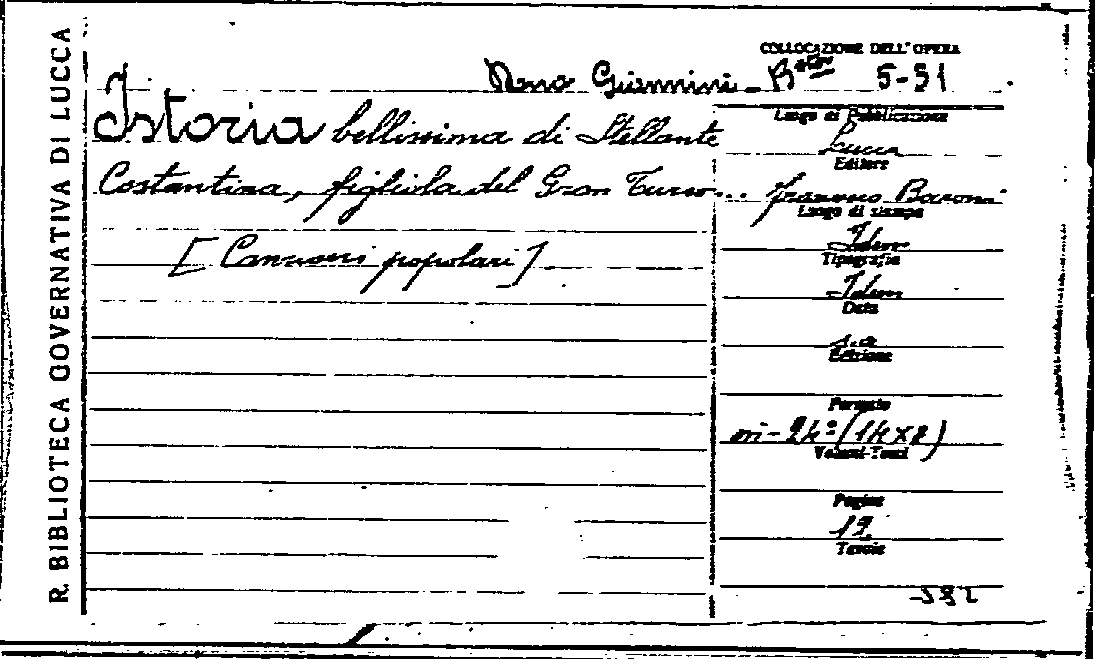 R. BIBLIOTECA GOVERNATIVA DI LUCCA
COLLOCAZIONE DELL'OPERA
Giannini - 5-51
Istoria bellissima di Stellante
Costantina, figliola del Gran Turco...
[Canzoni popolari]
Luogo di Pubblicazione
Lucca
Editore
Francesco Baroni
Luogo di stampa
Idem
Tipografia
Idem
Data
s.a
Edizione
Formato
in-24º (14x8)
Volumi-Tomi
Pagine
12
Tavole